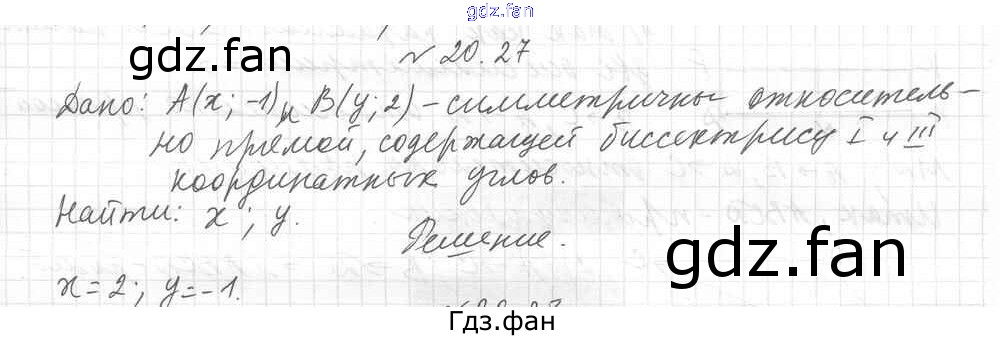 gdz.fan
gdz.fan
№ 20.27
Дано: A(x; -1) и B(y; 2) – симметричны относитель-
но прямой, содержащей биссектрису I и III
координатных углов.
Найти: x; y.
Решение.
gdz.fan
x = 2; y = -1.
Гдз.фан